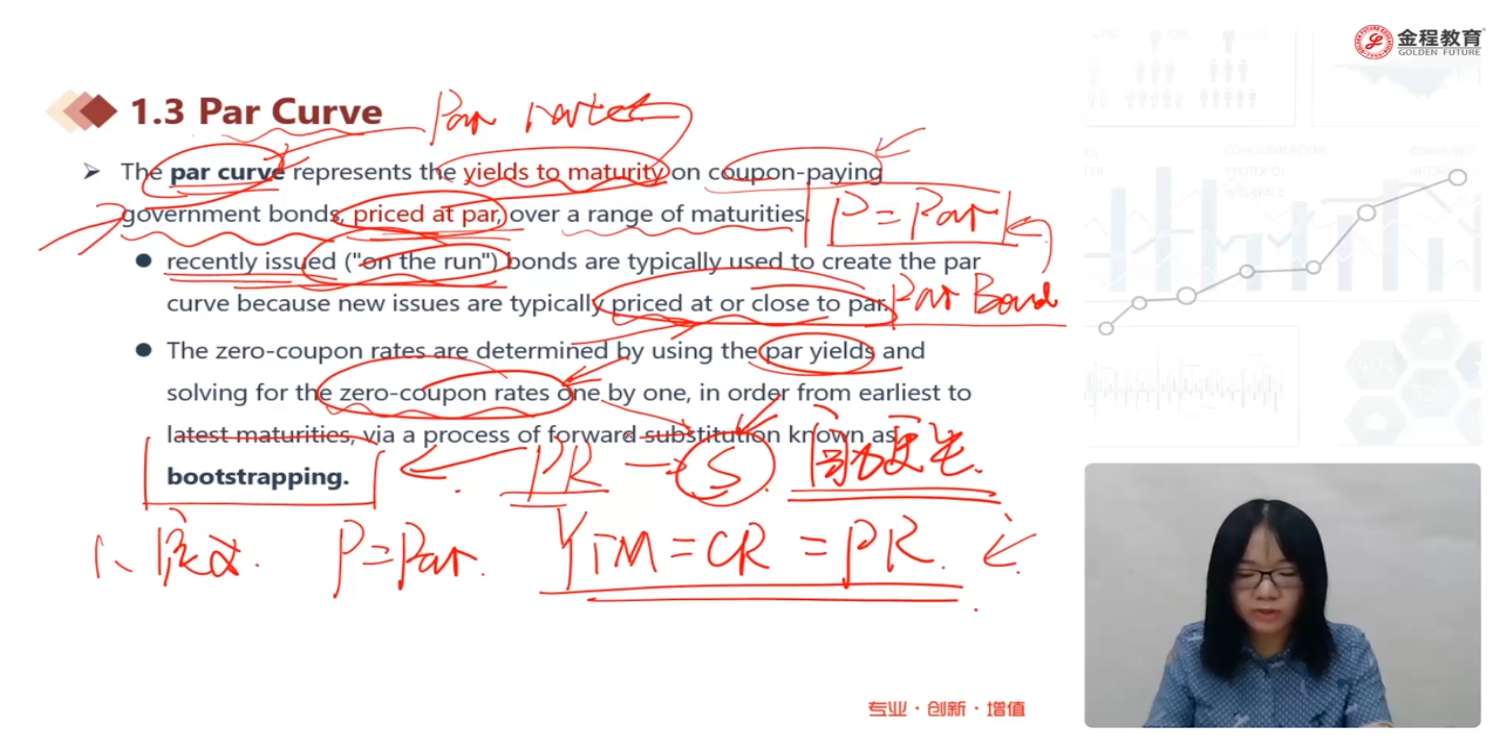 金程教育
GOLDEN FUTURE
1.3 Par Curve
Par rates
The par curve represents the yields to maturity on coupon-paying
government bonds, priced at par, over a range of maturities.
P = Par
recently issued ("on the run") bonds are typically used to create the par
curve because new issues are typically priced at or close to par.
Par Bond
The zero-coupon rates are determined by using the par yields and
solving for the zero-coupon rates one by one, in order from earliest to
latest maturities, via a process of forward substitution known as
bootstrapping.
PR → S
1、定义. P=Par. YTM = CR = PR.
专业·创新·增值